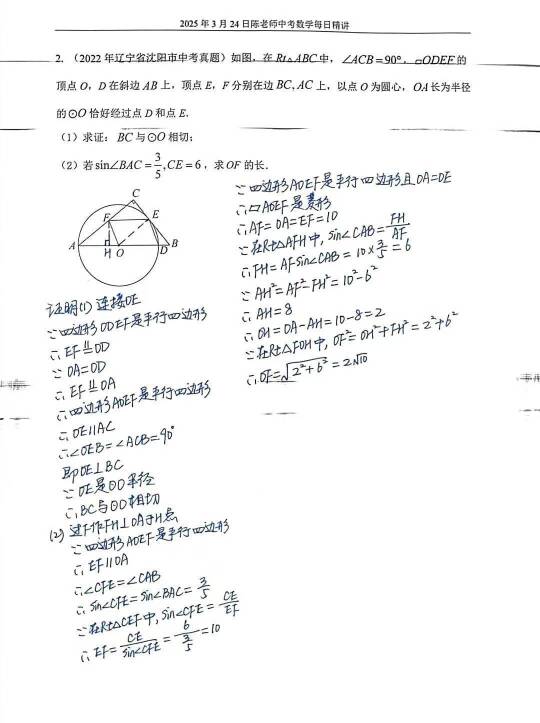 2025年3月24日陈老师中考数学每日精讲
2.（2022年辽宁省沈阳市中考真题）如图，在Rt△ABC中，∠ACB=90°，▱ODEF的
顶点O，D在斜边AB上，顶点E，F分别在边BC,AC上，以点O为圆心，OA长为半径
的⊙O恰好经过点D和点E.
（1）求证：BC与⊙O相切；
（2）若sin∠BAC=3/5,CE=6，求OF的长.
C
F
E
A
H
O
D
B
证明(1) 连接OE
∵四边形ODEF是平行四边形
∴EF∥=OD
∵OA=OD
∴EF∥=OA
∴四边形AOEF是平行四边形
∴OE∥AC
∴∠OEB=∠ACB=90°
即OE⊥BC
∵OE是⊙O半径
∴BC与⊙O相切
(2) 过F作FH⊥OA于H点
∵四边形AOEF是平行四边形
∴EF∥OA
∴∠CFE=∠CAB
∴sin∠CFE=sin∠BAC=3/5
∵在Rt△CEF中,sin∠CFE=CE/EF
∴EF=CE/sin∠CFE=6/(3/5)=10
∵四边形AOEF是平行四边形且OA=OE
∴▱AOEF是菱形
∴AF=OA=EF=10
∵在Rt△AFH中,sin∠CAB=FH/AF
∴FH=AFsin∠CAB=10×3/5=6
∵AH²=AF²-FH²=10²-6²
∴AH=8
∴OH=OA-AH=10-8=2
∵在Rt△FOH中,OF²=OH²+FH²=2²+6²
∴OF=√(2²+6²)=2√10